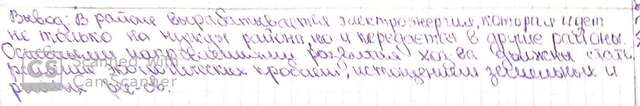 Вывод: В районе вырабатывается электроэнергия, которая идет
не только на нужды района, но и передается в другие районы.
Основными направлениями развития хоз-ва должны стать
решения экологических проблем, истощением земельных и
CS Scanned with
CamScanner